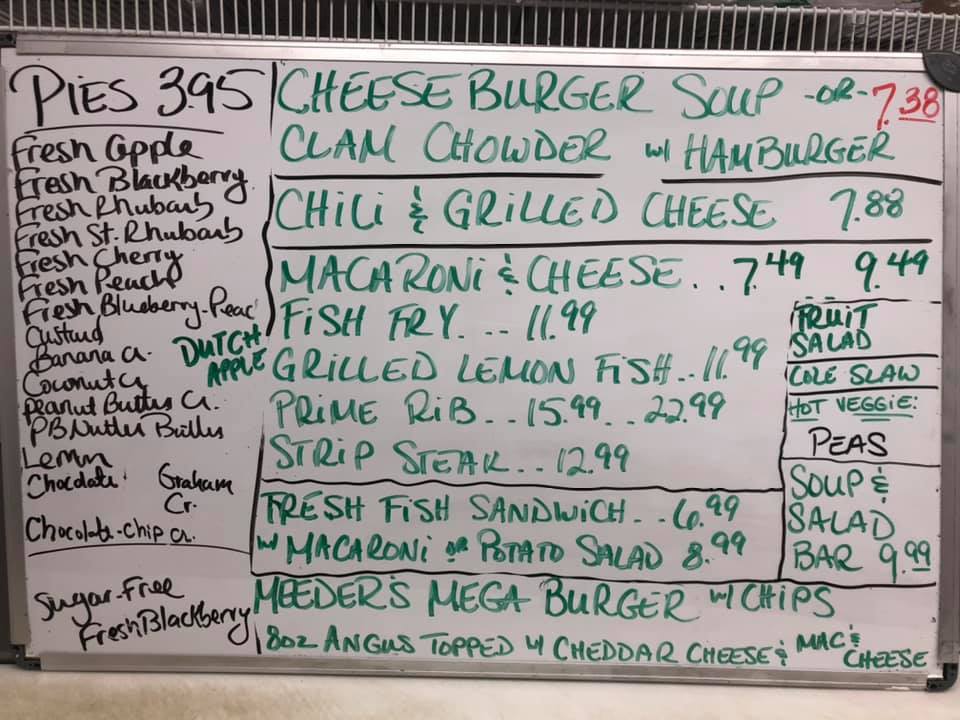 PIES 3.95
Fresh Apple
Fresh Blackberry
Fresh Rhubarb
Fresh St. Rhubarb
Fresh Cherry
Fresh Peach
Fresh Blueberry-Peac
Custard
Banana Cr.
DUTCH
APPLE
Coconut Cr
Peanut Butter Cr.
PB Nutter Butter
Lemon
Chocolate
Graham
Cr.
Chocolate-Chip Cr.
Sugar-Free
Fresh Blackberry
CHEESEBURGER SOUP -OR- 7.38
CLAM CHOWDER w/ HAMBURGER
CHILI & GRILLED CHEESE 7.88
MACARONI & CHEESE.. 7.49 9.49
FISH FRY... 11.99
GRILLED LEMON FISH.. 11.99
PRIME RIB.. 15.99.. 22.99
STRIP STEAK.. 12.99
FRESH FISH SANDWICH... 6.99
w/ MACARONI OR POTATO SALAD 8.99
FRUIT
SALAD
COLE SLAW
HOT VEGGIE:
PEAS
SOUP &
SALAD
BAR 9.99
MEEDER'S MEGA BURGER w/ CHIPS
8oz ANGUS TOPPED w/ CHEDDAR CHEESE & MAC &
CHEESE